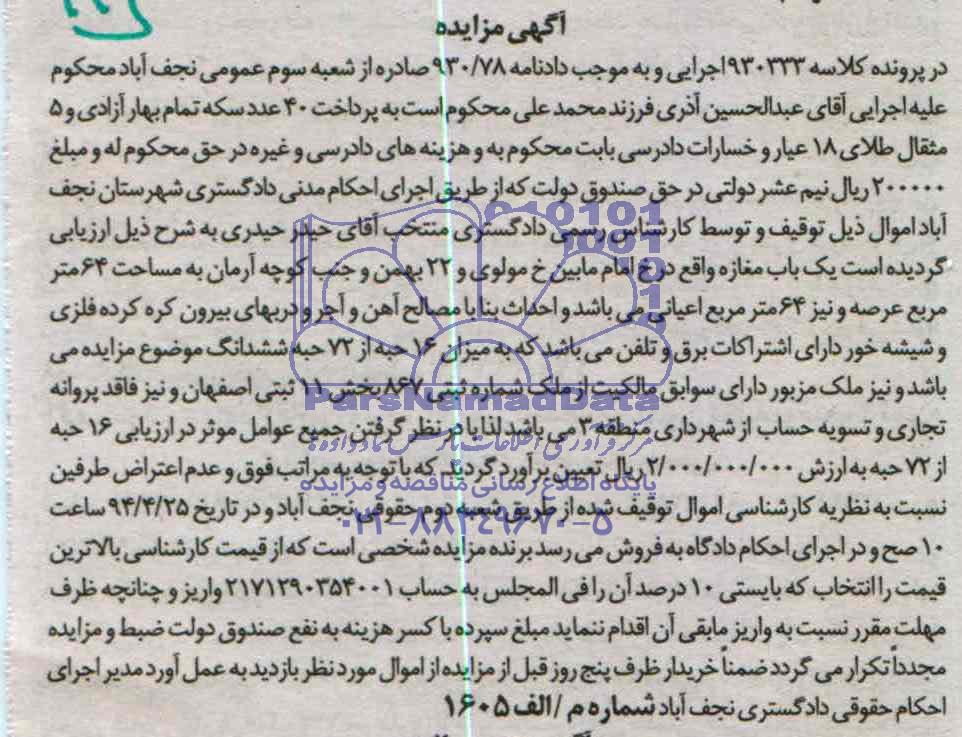 آگهی مزایده
در پرونده کلاسه ۹۳۰۳۳۳ اجرایی و به موجب دادنامه ۹۳۰/۷۸ صادره از شعبه سوم عمومی نجف آباد محکوم
علیه اجرایی آقای عبدالحسین آذری فرزند محمد علی محکوم است به پرداخت ۴۰ عدد سکه تمام بهار آزادی و ۵
مثقال طلای ۱۸ عیار و خسارات دادرسی بابت محکوم به و هزینه های دادرسی و غیره در حق محکوم له و مبلغ
۲۰۰۰۰۰ ریال نیم عشر دولتی در حق صندوق دولت که از طریق اجرای احکام مدنی دادگستری شهرستان نجف
آباد اموال ذیل توقیف و توسط کارشناس رسمی دادگستری منتخب آقای حیدر حیدری به شرح ذیل ارزیابی
گردیده است یک باب مغازه واقع در خ امام مابین خ مولوی و ۲۲ بهمن و جنب کوچه آرمان به مساحت ۶۴ متر
مربع عرصه و نیز ۶۴ متر مربع اعیانی می باشد و احداث بنا با مصالح آهن و آجر و دربهای بیرون کره کرده فلزی
و شیشه خور دارای اشتراکات برق و تلفن می باشد که به میزان ۱۶ حبه از ۷۲ حبه ششدانگ موضوع مزایده می
باشد و نیز ملک مزبور دارای سوابق مالکیت از ملک شماره ثبتی ۸۶۷ بخش ۱۱ ثبتی اصفهان و نیز فاقد پروانه
تجاری و تسویه حساب از شهرداری منطقه ۳ می باشد لذا با در نظر گرفتن جمیع عوامل موثر در ارزیابی ۱۶ حبه
از ۷۲ حبه به ارزش ۲/۰۰۰/۰۰۰/۰۰۰ ریال تعیین برآورد گردید که با توجه به مراتب فوق و عدم اعتراض طرفین
نسبت به نظریه کارشناسی اموال توقیف شده از طریق شعبه دوم حقوقی نجف آباد و در تاریخ ۹۴/۴/۲۵ ساعت
۱۰ صبح و در اجرای احکام دادگاه به فروش می رسد برنده مزایده شخصی است که از قیمت کارشناسی بالاترین
قیمت را انتخاب که بایستی ۱۰ درصد آن را فی المجلس به حساب ۲۱۷۱۲۹۰۳۵۴۰۰۱ واریز و چنانچه ظرف
مهلت مقرر نسبت به واریز مابقی آن اقدام ننماید مبلغ سپرده با کسر هزینه به نفع صندوق دولت ضبط و مزایده
مجدداً تکرار می گردد ضمناً خریدار ظرف پنج روز قبل از مزایده از اموال مورد نظر بازدید به عمل آورد مدیر اجرای
احکام حقوقی دادگستری نجف آباد شماره م /الف ۱۶۰۵
ParsNamadData
مرکز فرآوری اطلاعات پارس نماد داده ها
پایگاه اطلاع رسانی مناقصه و مزایده
۰۲۱-۸۸۳۴۹۶۷۰-۵